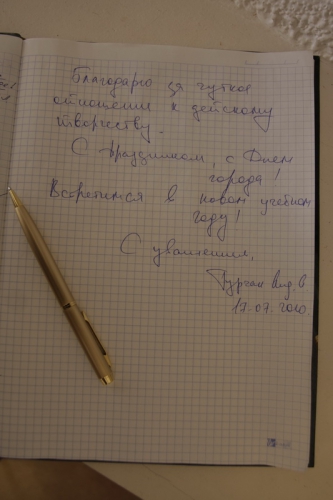 Благодарю за чуткое
отношение к детскому
творчеству.
С праздником, с Днем
города!
Встретимся в новом учебном
году!
С уважением,
17.07.2010.